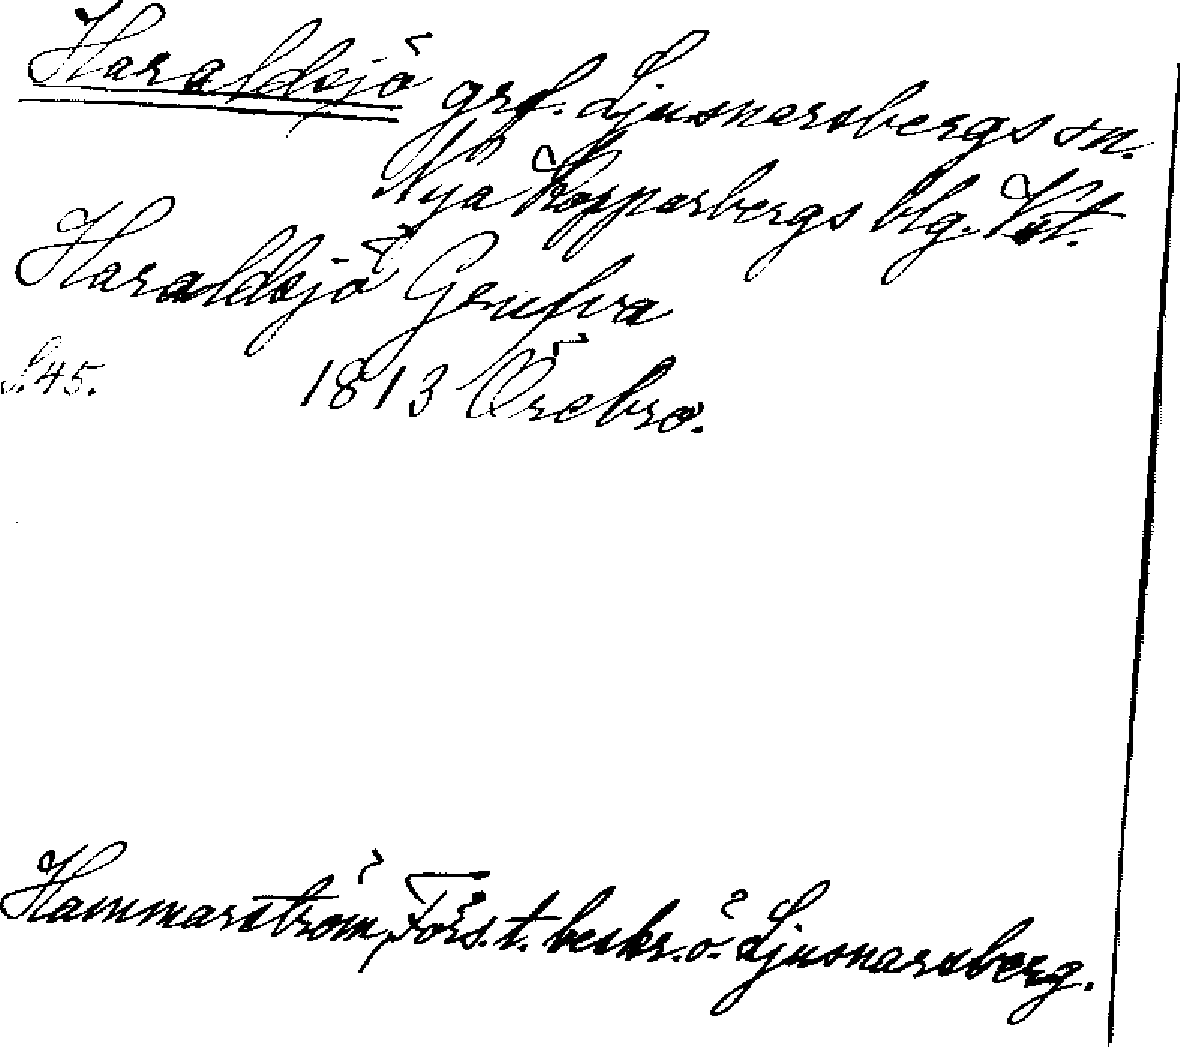 Haraldsjö grf. Ljusnarsbergs sn.
Nya Kopparbergs blg. Vst.
Haraldsjö Grufva
S.45. 1813 Örebro.
Hammarström, Förs. t. beskr. ö. Ljusnarsberg.